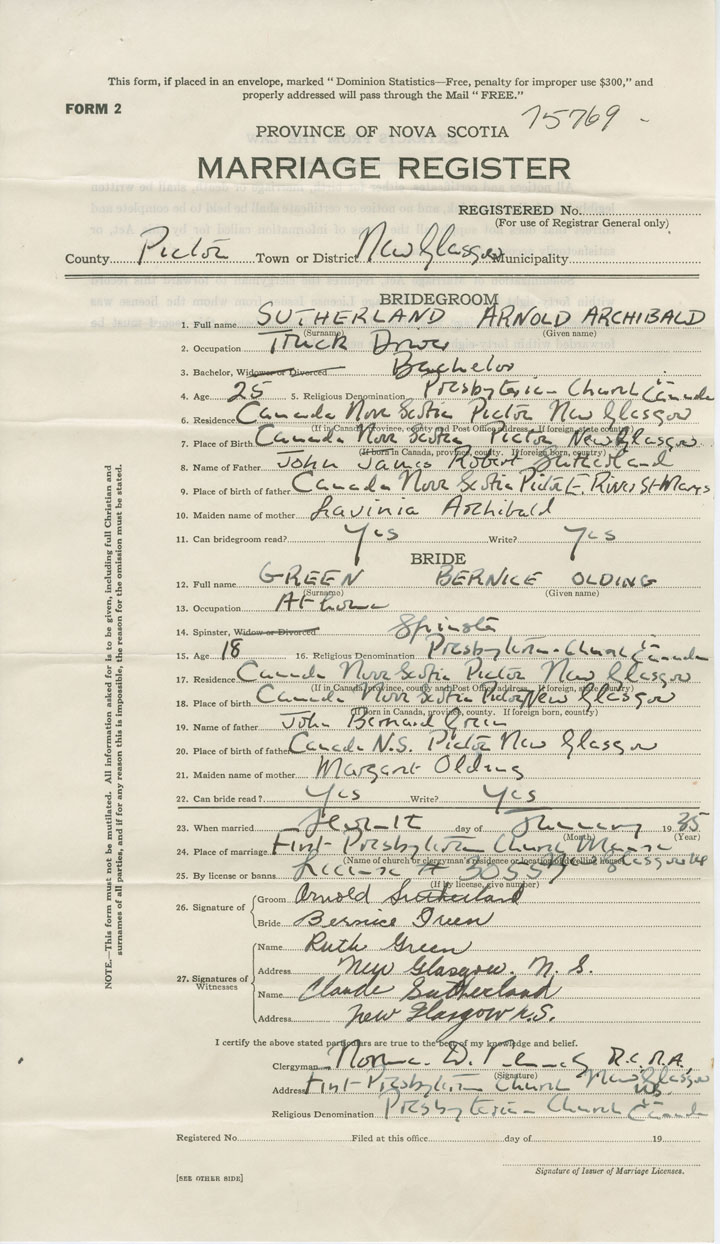 This form, if placed in an envelope, marked “ Dominion Statistics—Free, penalty for improper use $300,” and
properly addressed will pass through the Mail “ FREE.”
FORM 2
15769 -
PROVINCE OF NOVA SCOTIA
MARRIAGE REGISTER
REGISTERED No.
(For use of Registrar General only)
County Pictou Town or District New Glasgow Municipality
BRIDEGROOM
1. Full name SUTHERLAND ARNOLD ARCHIBALD
(Surname) (Given name)
2. Occupation Truck Driver
3. Bachelor, Widower or Divorced Bachelor
4. Age 25 5. Religious Denomination Presbyterian Church in Canada
6. Residence Canada Nova Scotia Pictou New Glasgow
(If in Canada, province, county and Post Office address. If foreign, state country)
7. Place of Birth Canada Nova Scotia Pictou New Glasgow
(If born in Canada, province, county. If foreign born, country)
8. Name of Father John James Robert Sutherland
9. Place of birth of father Canada Nova Scotia Pictou E. River St Marys
10. Maiden name of mother Lavinia Archibald
11. Can bridegroom read? Yes Write? Yes
BRIDE
12. Full name GREEN BERNICE OLDING
(Surname) (Given name)
13. Occupation At home
14. Spinster, Widow or Divorced Spinster
15. Age 18 16. Religious Denomination Presbyterian Church in Canada
17. Residence Canada Nova Scotia Pictou New Glasgow
(If in Canada, province, county and Post Office address. If foreign, state country)
18. Place of birth Canada Nova Scotia Pictou New Glasgow
(If born in Canada, province, county. If foreign born, country)
19. Name of father John Bernard Green
20. Place of birth of father Canada N.S. Pictou New Glasgow
21. Maiden name of mother Margaret Olding
22. Can bride read? Yes Write? Yes
23. When married day of January 1935
(Month) (Year)
24. Place of marriage First Presbyterian Church Manse
(Name of church or clergyman's residence or location of dwelling house) New Glasgow NS
25. By license or banns License #
(If by license, give number)
26. Signature of Groom Arnold Sutherland
Bride Bernice Green
27. Signatures of Witnesses
Name Ruth Green
Address New Glasgow. N. S.
Name Claude Sutherland
Address New Glasgow N.S.
I certify the above stated particulars are true to the best of my knowledge and belief.
Clergyman Norman D.
(Signature)
Address First Presbyterian Church New Glasgow NS.
Religious Denomination Presbyterian Church in Canada
Registered No. Filed at this office day of 19
Signature of Issuer of Marriage Licenses.
[SEE OTHER SIDE]
NOTE.—This form must not be mutilated. All information asked for is to be given, including full Christian and
surnames of all parties, and if for any reason this is impossible, the reason for the omission must be stated.